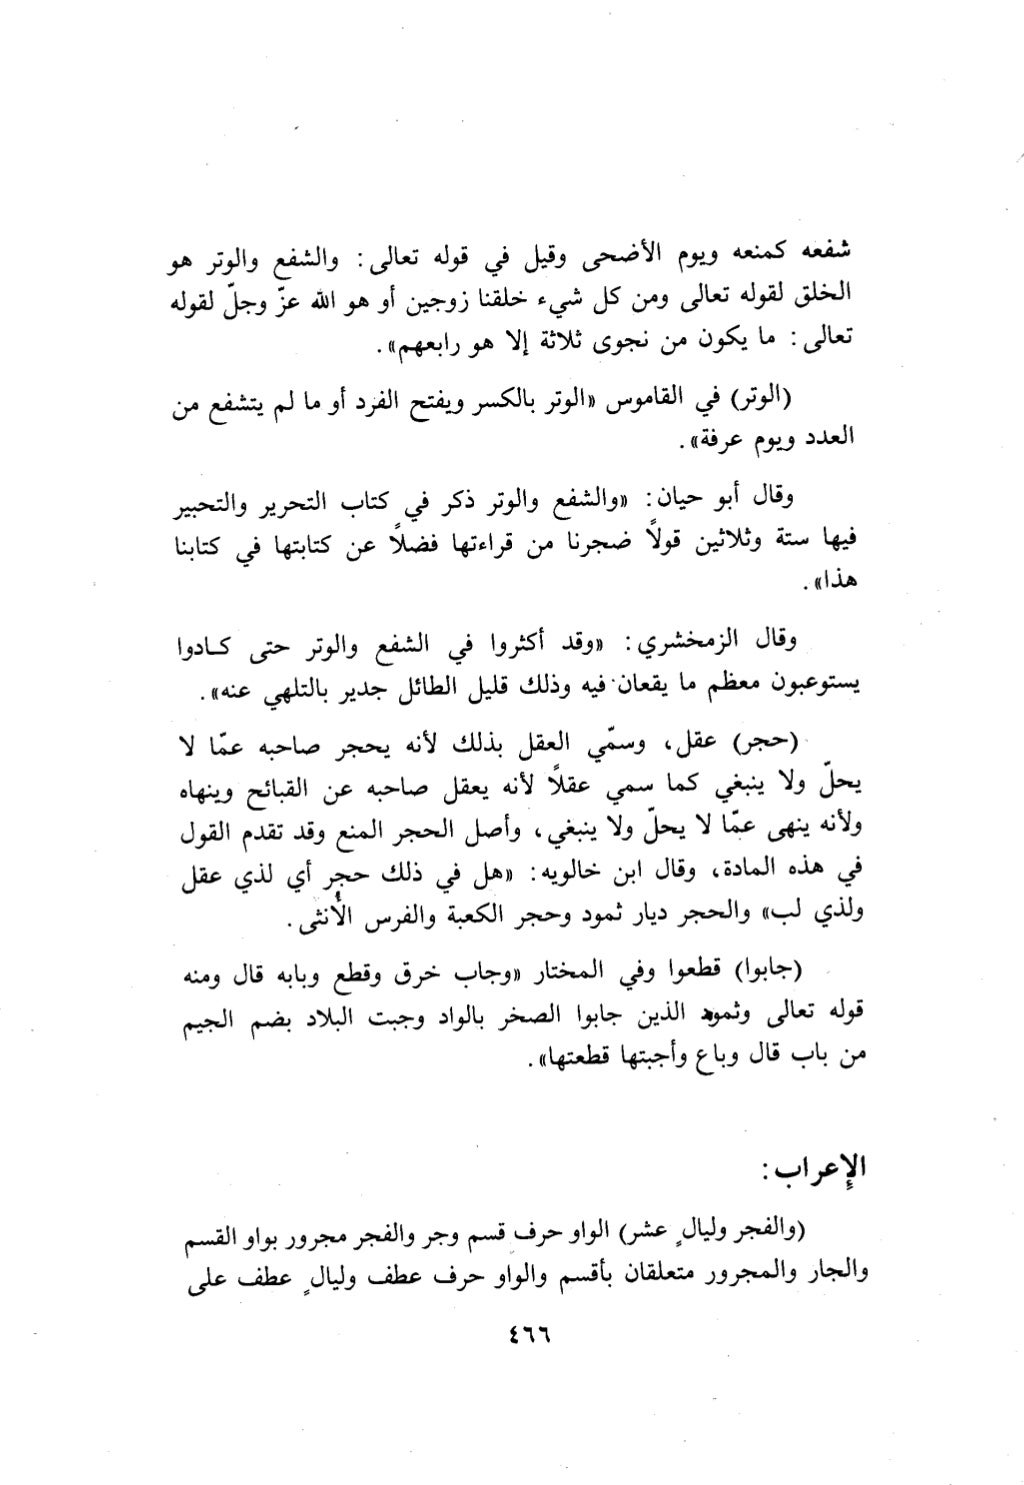 شفعه كمنعه ويوم الأضحى وقيل في قوله تعالى: والشفع والوتر هو
الخلق لقوله تعالى ومن كل شيء خلقنا زوجين أو هو الله عزّ وجلّ لقوله
تعالى: ما يكون من نجوى ثلاثة إلا هو رابعهم».
(الوتر) في القاموس «الوتر بالكسر ويفتح الفرد أو ما لم يتشفع من
العدد ويوم عرفة».
وقال أبو حيان: «والشفع والوتر ذكر في كتاب التحرير والتحبير
فيها ستة وثلاثين قولاً ضجرنا من قراءتها فضلاً عن كتابتها في كتابنا
هذا».
وقال الزمخشري: «وقد أكثروا في الشفع والوتر حتى كادوا
يستوعبون معظم ما يقعان فيه وذلك قليل الطائل جدير بالتلهي عنه».
(حجر) عقل، وسمّي العقل بذلك لأنه يحجر صاحبه عمّا لا
يحلّ ولا ينبغي كما سمي عقلاً لأنه يعقل صاحبه عن القبائح وينهاه
ولأنه ينهى عمّا لا يحلّ ولا ينبغي، وأصل الحجر المنع وقد تقدم القول
في هذه المادة، وقال ابن خالويه: «هل في ذلك حجر أي لذي عقل
ولذي لب» والحجر ديار ثمود وحجر الكعبة والفرس الأنثى.
(جابوا) قطعوا وفي المختار «وجاب خرق وقطع وبابه قال ومنه
قوله تعالى وثمود الذين جابوا الصخر بالواد وجبت البلاد بضم الجيم
من باب قال وباع وأجبتها قطعتها».
الإعراب:
(والفجر وليالٍ عشر) الواو حرف قسم وجر والفجر مجرور بواو القسم
والجار والمجرور متعلقان بأقسم والواو حرف عطف وليالٍ عطف على
٤٦٦